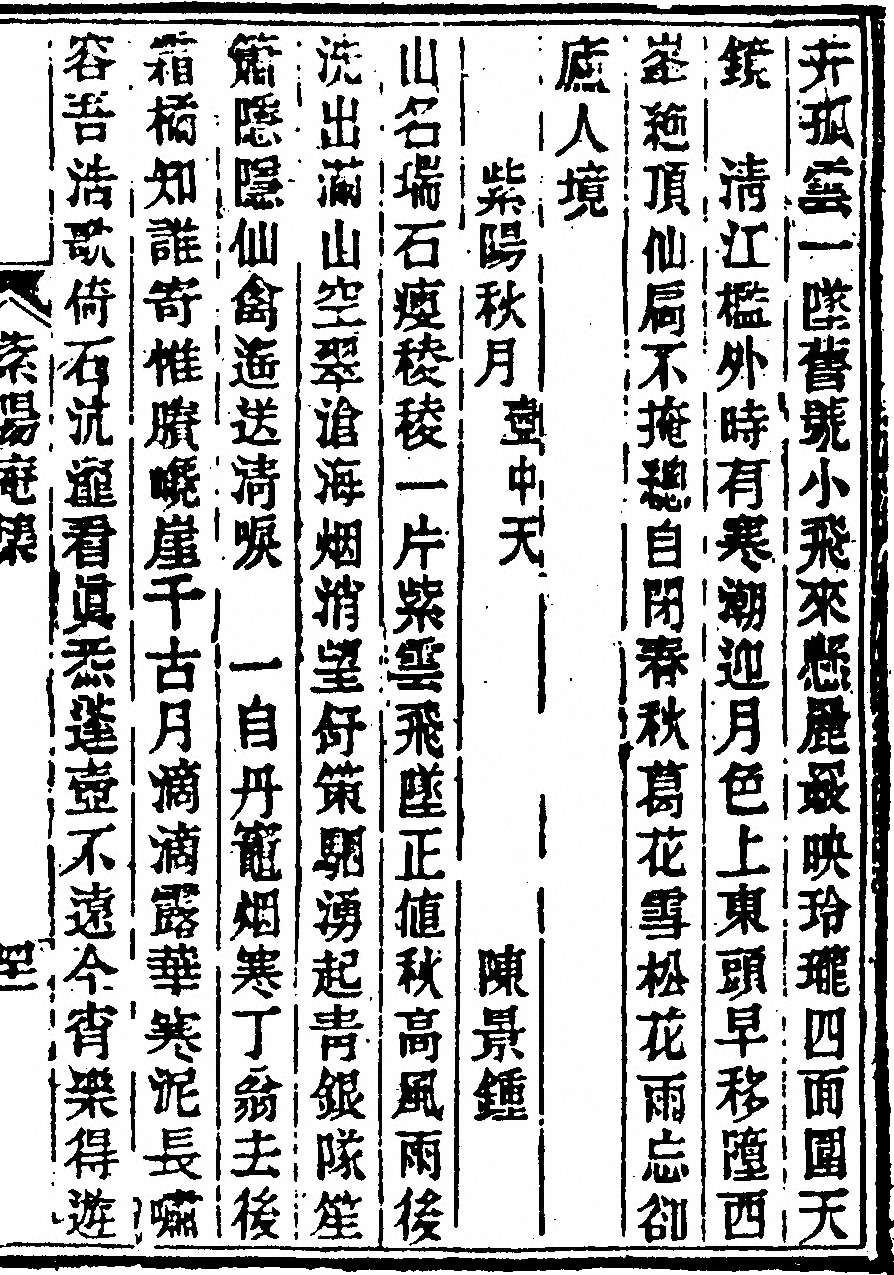 卉孤雲一墜舊號小飛來懸麗最映玲瓏四面圍天
鏡　清江檻外時有寒潮迎月色上東頭早移墮西
峯絶頂仙扃不掩緫自閉春秋葛花雪松花雨忘卻
廬人境
紫陽秋月 壺中天　陳景鍾
山名瑞石瘦稜稜一片紫雲飛墜正値秋高風雨後
洗出滿山空翠滄海烟消望舒策馭湧起靑銀隊笙
簫隱隱仙禽遙送淸唳　一自丹竈烟寒丁翁去後
霜橘知誰寄惟賸巉崖千古月滴滴露華寒泥長嘯
容吾浩歌倚石沆瀣看眞炁蓬壺不遠今宵樂得遊
紫陽庵集　四